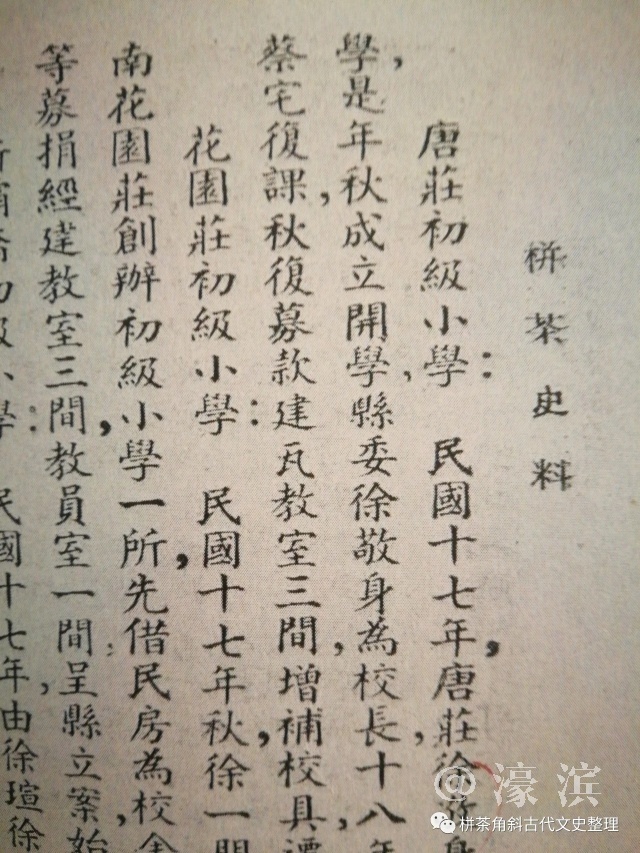 栟茶史料
唐莊初級小學： 民國十七年，唐莊徐
學，是年秋，成立開學，縣委徐敬身為校長，十八年
蔡宅復課，秋復募款建瓦教室三間，增補校具
花園莊初級小學： 民國十七年秋，徐一
南花園莊創辦初級小學一所，先借民房為校舍
等募捐，經建教室三間，教員室一間，呈縣立案，始
初級小學： 民國十七年由徐瑄徐
@濠滨
栟茶角斜古代文史整理